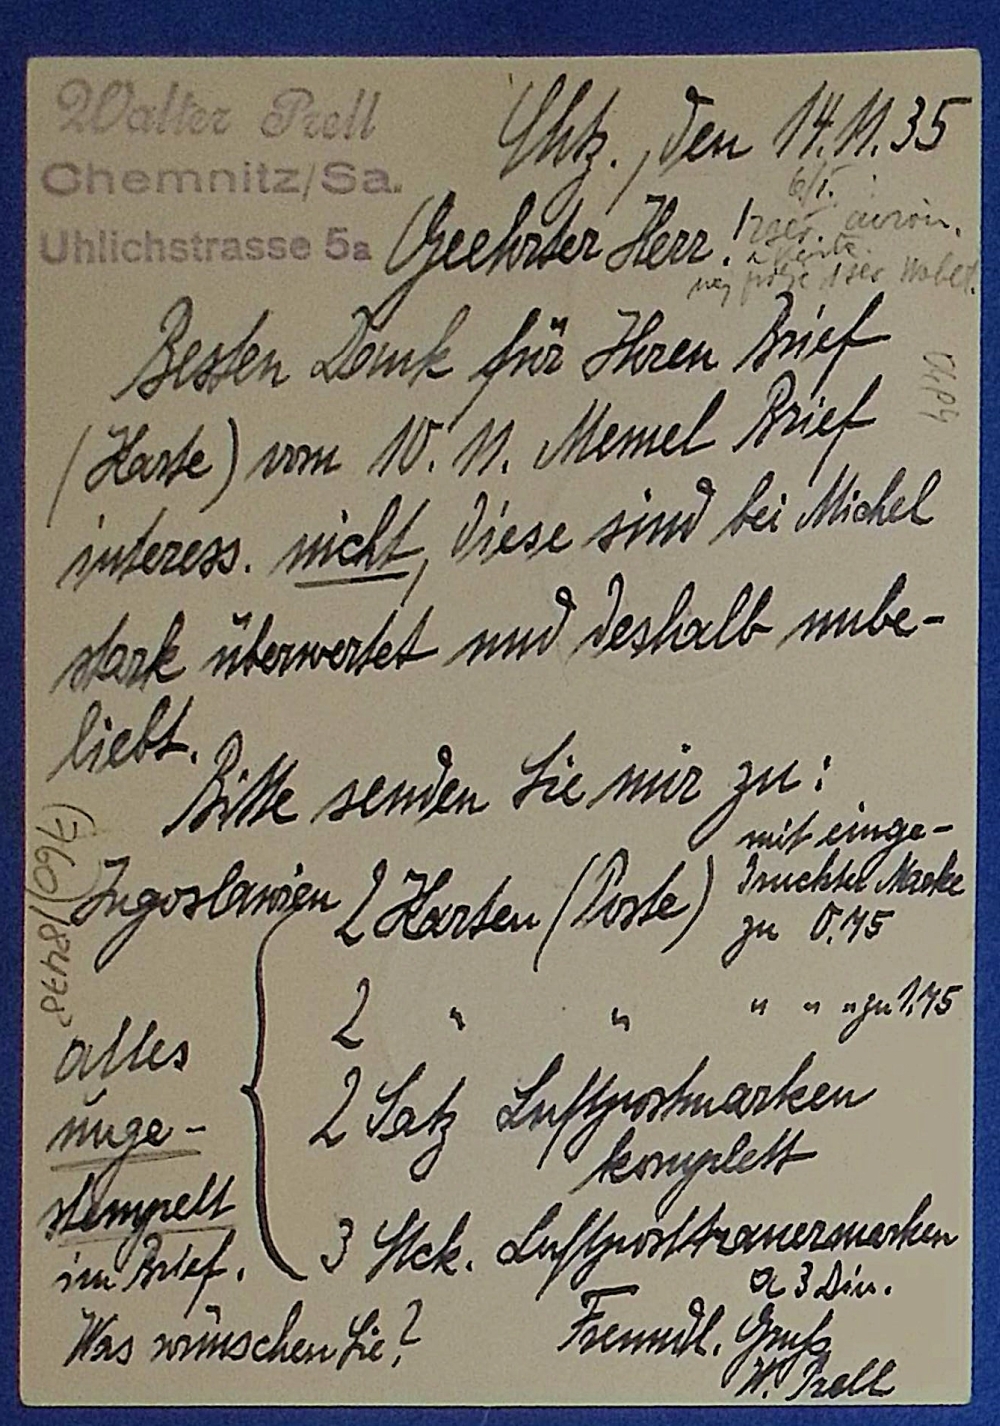 Walter Prell
Chemnitz/Sa.
Uhlichstrasse 5a
Chtz., den 14.11.35
Geehrter Herr!
Besten Dank für Ihren Brief
(Karte) vom 10. 11. Memel Brief
interess. nicht, diese sind bei Michel
stark überwertet und deshalb unbe-
liebt.
Bitte senden Sie mir zu:
Jugoslawien 2 Karten (Poste) mit einge-
druckter Marke
zu 0.75
2 " " " " " zu 1.75
2 Satz Luftpostmarken
komplett
3 Stck. Luftposttrauermarken
a 3 Din.
alles
unge-
stempelt
im Brief.
Was wünschen Sie?
Freundl. Gruß
W. Prell